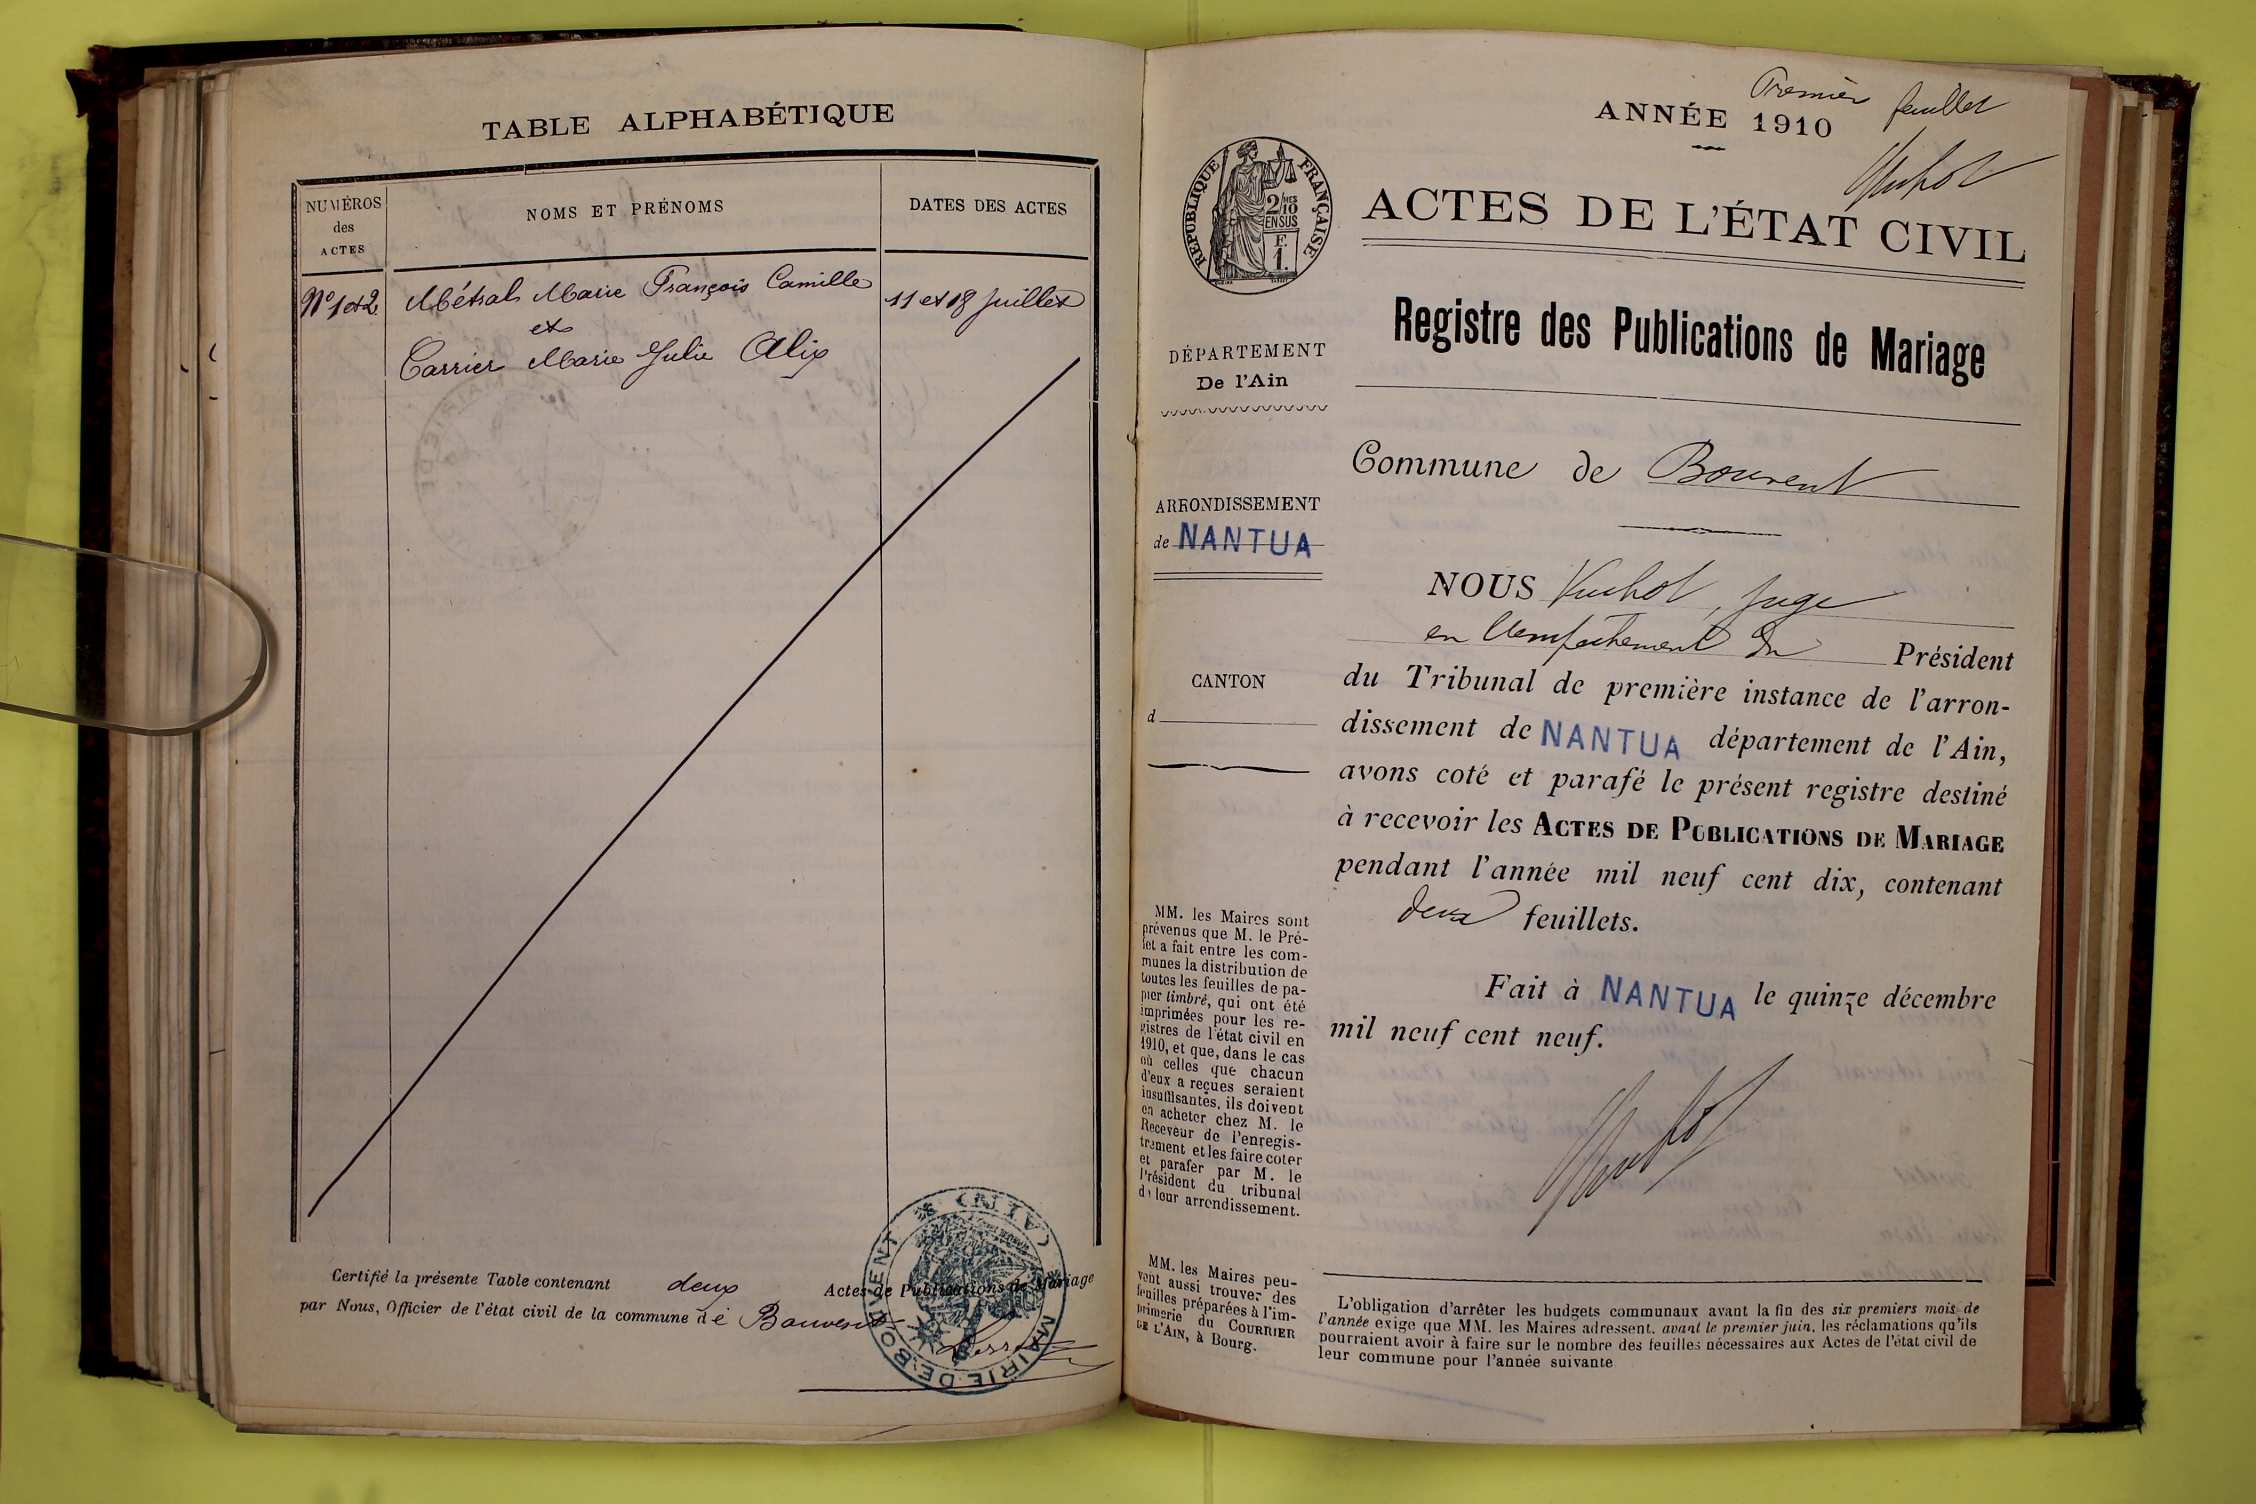 TABLE ALPHABÉTIQUE
NUMÉROS
des
ACTES
NOMS ET PRÉNOMS
DATES DES ACTES
Nº 1 et 2
Métral Marie François Camille
11 et 18 Juillet
et
Carrier Marie Julie Alix
Certifié la présente Table contenant deux Actes de Publications de Mariage
par Nous, Officier de l'état civil de la commune de Bouvent
MAIRIE DE BOUVENT (AIN)
Premier feuillet
ANNÉE 1910
Vuchot
RÉPUBLIQUE FRANÇAISE
2/10
EN SUS
F.
1.
ACTES DE L'ÉTAT CIVIL
Registre des Publications de Mariage
DÉPARTEMENT
De l'Ain
Commune de Bouvent
ARRONDISSEMENT
de NANTUA
CANTON
d
NOUS Vuchot, juge
en l'empêchement du Président
du Tribunal de première instance de l'arron-
dissement de NANTUA département de l'Ain,
avons coté et parafé le présent registre destiné
à recevoir les ACTES DE PUBLICATIONS DE MARIAGE
pendant l'année mil neuf cent dix, contenant
deux feuillets.
Fait à NANTUA le quinze décembre
mil neuf cent neuf.
Vuchot
MM. les Maires sont
prévenus que M. le Pré-
fet a fait entre les com-
munes la distribution de
toutes les feuilles de pa-
pier timbré, qui ont été
imprimées pour les re-
gistres de l'état civil en
1910, et que, dans le cas
où celles que chacun
d'eux a reçues seraient
insuffisantes, ils doivent
en acheter chez M. le
Receveur de l'enregis-
trement et les faire coter
et parafer par M. le
Président du tribunal
de leur arrondissement.
MM. les Maires peu-
vent aussi trouver des
feuilles préparées à l'im-
primerie du COURRIER
DE L'AIN, à Bourg.
L'obligation d'arrêter les budgets communaux avant la fin des six premiers mois de
l'année exige que MM. les Maires adressent, avant le premier juin, les réclamations qu'ils
pourraient avoir à faire sur le nombre des feuilles nécessaires aux Actes de l'état civil de
leur commune pour l'année suivante